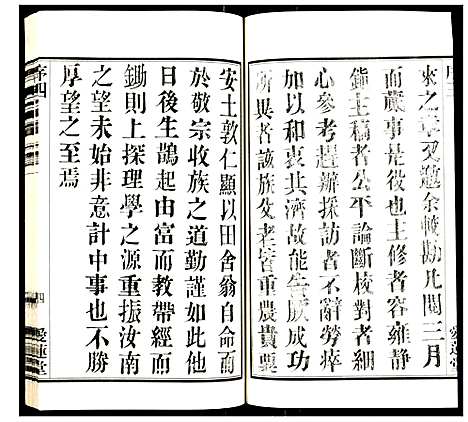 來之章又邀余較勘凡閱三月
而蕆事是役也主修者容雍靜
鎮主稿者公平論斷核對者細
心參考趕辦採訪者不辭勞瘁
如以和衷共濟故能尅成功
所異者該族父老皆重農貴粟
安土敦仁顯以田舍翁自命而
於敬宗收族之道勤謹如此他
日後生鵲起由富而教帶經而
鋤則上探理學之源重振汝南
之望未始非意計中事也不勝
厚望之至焉
序四
四
愛蓮堂